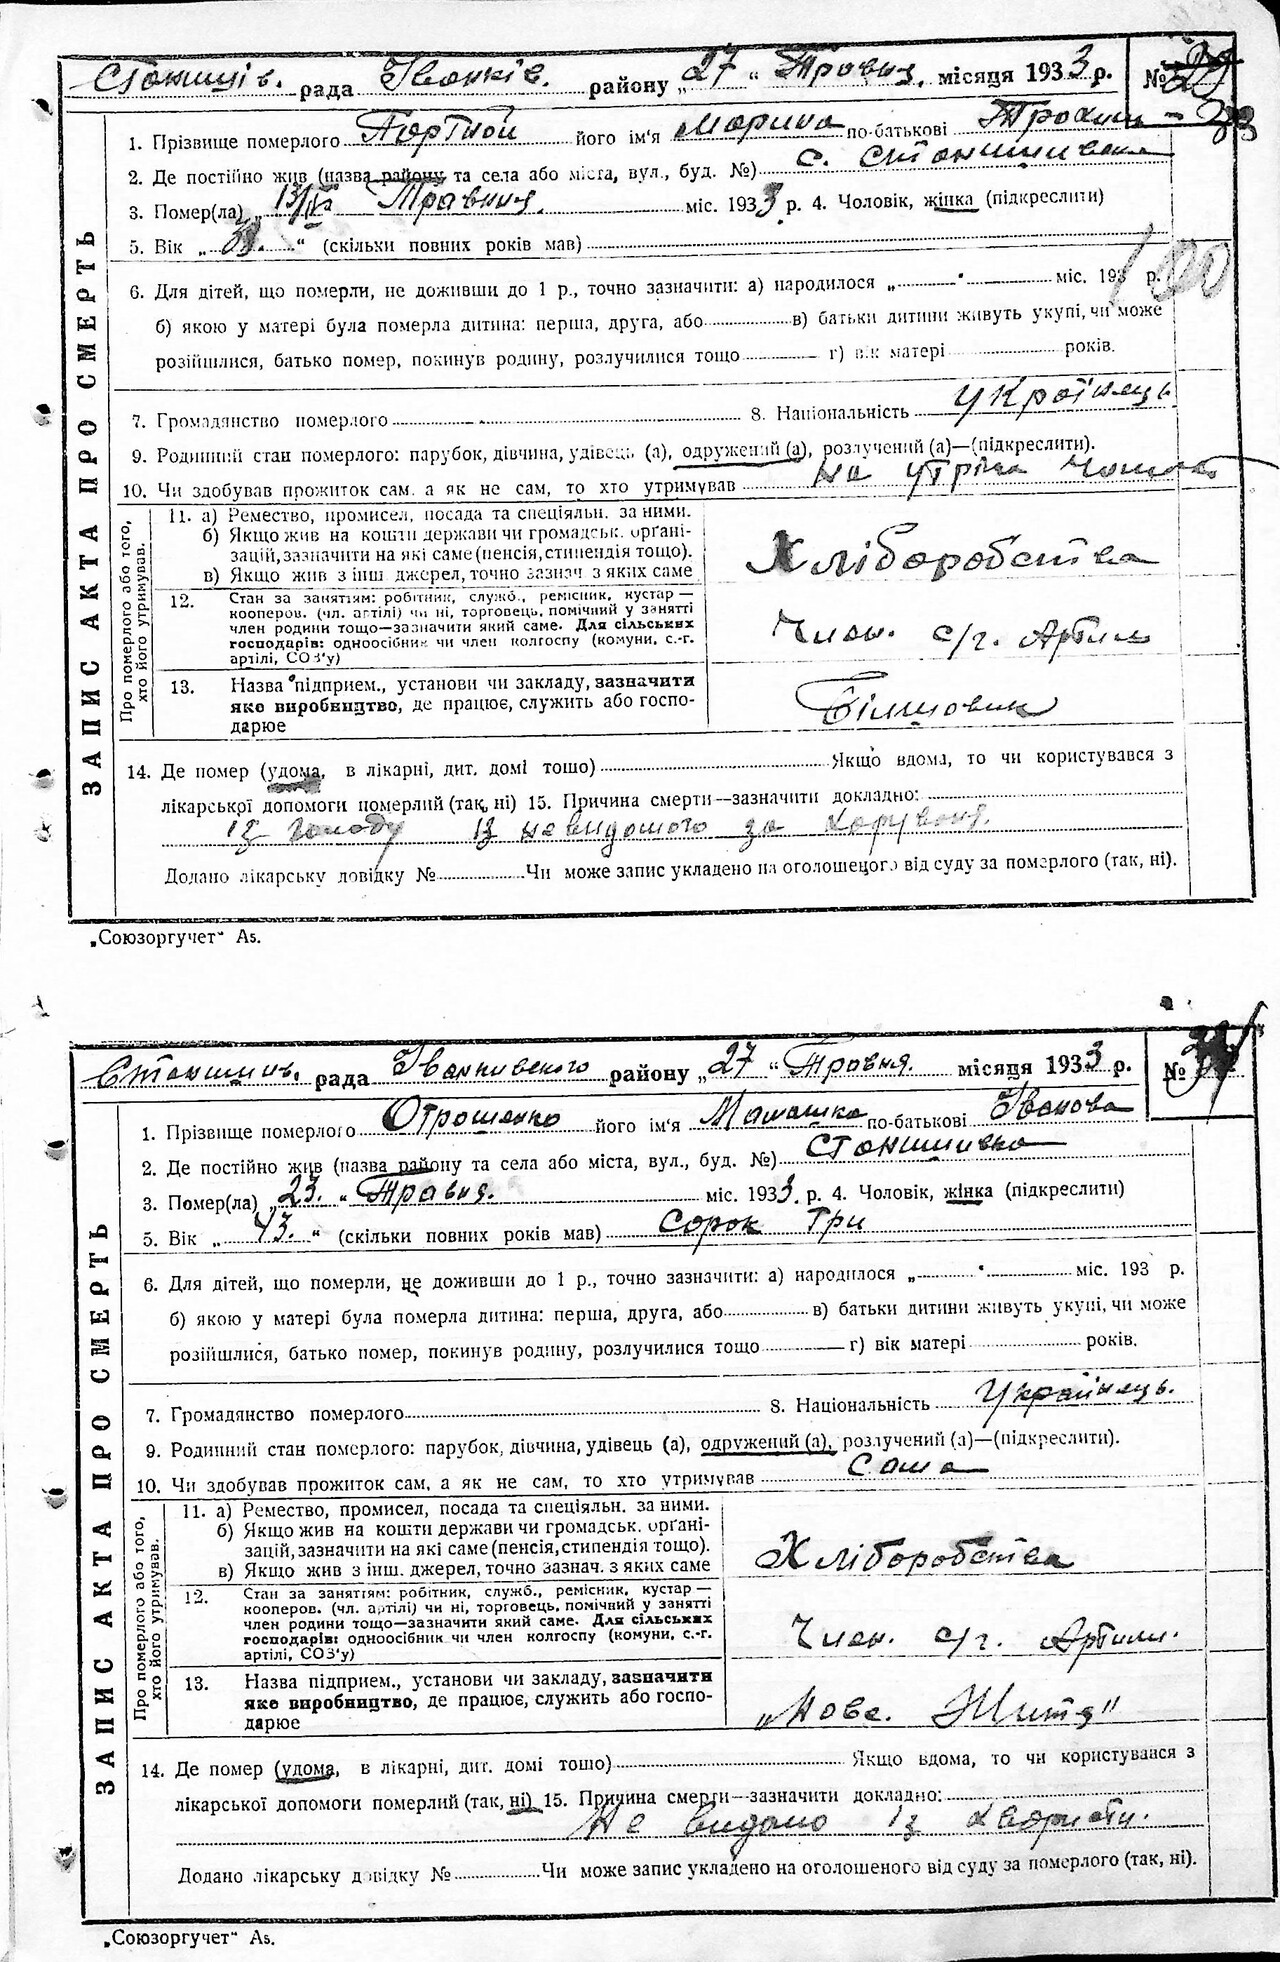 Стокищів. рада Іванків. району „27“ Травня. місяця 1933 р. №
1. Прізвище померлого Портной його ім'я Марина по-батькові
2. Де постійно жив (назва району та села або міста, вул., буд. №) с.
3. Помер(ла) „ Травня. міс. 1933 р. 4. Чоловік, жінка (підкреслити)
5. Вік „ “ (скільки повних років мав)
6. Для дітей, що померли, не доживши до 1 р., точно зазначити: а) народилося „ “ міс. 193 р.
100
б) якою у матері була померла дитина: перша, друга, або в) батьки дитини живуть укупі, чи може
розійшлися, батько помер, покинув родину, розлучилися тощо г) вік матері років.
7. Громадянство померлого 8. Національність Українець
9. Родинний стан померлого: парубок, дівчина, удівець (а), одружений (а), розлучений (а)—(підкреслити).
10. Чи здобував прожиток сам, а як не сам, то хто утримував на
ЗАПИС АКТА ПРО СМЕРТЬ
Про померлого або того, хто його утримував.
11. а) Ремество, промисел, посада та спеціяльн. за ними.
б) Якщо жив на кошти держави чи громадськ. органі-
зацій, зазначити на які саме (пенсія, стипендія тощо).
в) Якщо жив з інш. джерел, точно зазнач. з яких саме
Хліборобства
12. Стан за заняттям: робітник, служб., ремісник, кустар—
кооперов. (чл. артілі) чи ні, торговець, помічний у занятті
член родини тощо—зазначити який саме. Для сільських
господарів: одноосібник чи член колгоспу (комуни, с.-г.
артілі, СОЗ'у)
Член. с/г. Артили
13. Назва підприєм., установи чи закладу, зазначити
яке виробництво, де працює, служить або госпо-
дарює
Більшовик
14. Де помер (удома, в лікарні, дит. домі тощо) Якщо вдома, то чи користувався з
лікарської допомоги померлий (так, ні) 15. Причина смерти—зазначити докладно:
із голоду із невидомого за
Додано лікарську довідку № Чи може запис укладено на оголошеного від суду за померлого (так, ні).
„Союзоргучет“ А5.
рада Іванкивского району „27“ Травня. місяця 1933 р. №
1. Прізвище померлого Отрошенко його ім'я по-батькові Іванова
2. Де постійно жив (назва району та села або міста, вул., буд. №)
3. Помер(ла) „23.“ Травня. міс. 1933. р. 4. Чоловік, жінка (підкреслити)
5. Вік „43.“ (скільки повних років мав) Сорок три
6. Для дітей, що померли, не доживши до 1 р., точно зазначити: а) народилося „ “ міс. 193 р.
б) якою у матері була померла дитина: перша, друга, або в) батьки дитини живуть укупі, чи може
розійшлися, батько помер, покинув родину, розлучилися тощо г) вік матері років.
7. Громадянство померлого 8. Національність Українець.
9. Родинний стан померлого: парубок, дівчина, удівець (а), одружений (а), розлучений (а)—(підкреслити).
10. Чи здобував прожиток сам, а як не сам, то хто утримував сама
ЗАПИС АКТА ПРО СМЕРТЬ
Про померлого або того, хто його утримував.
11. а) Ремество, промисел, посада та спеціяльн. за ними.
б) Якщо жив на кошти держави чи громадськ. органі-
зацій, зазначити на які саме (пенсія, стипендія тощо).
в) Якщо жив з інш. джерел, точно зазнач. з яких саме
Хліборобства
12. Стан за заняттям: робітник, служб., ремісник, кустар—
кооперов. (чл. артілі) чи ні, торговець, помічний у занятті
член родини тощо—зазначити який саме. Для сільських
господарів: одноосібник чи член колгоспу (комуни, с.-г.
артілі, СОЗ'у)
Член. с/г. Артили.
13. Назва підприєм., установи чи закладу, зазначити
яке виробництво, де працює, служить або госпо-
дарює
„Нове. Життя"
14. Де помер (удома, в лікарні, дит. домі тощо) Якщо вдома, то чи користувався з
лікарської допомоги померлий (так, ні) 15. Причина смерти—зазначити докладно:
Не видомо із
Додано лікарську довідку № Чи може запис укладено на оголошеного від суду за померлого (так, ні).
„Союзоргучет“ А5.